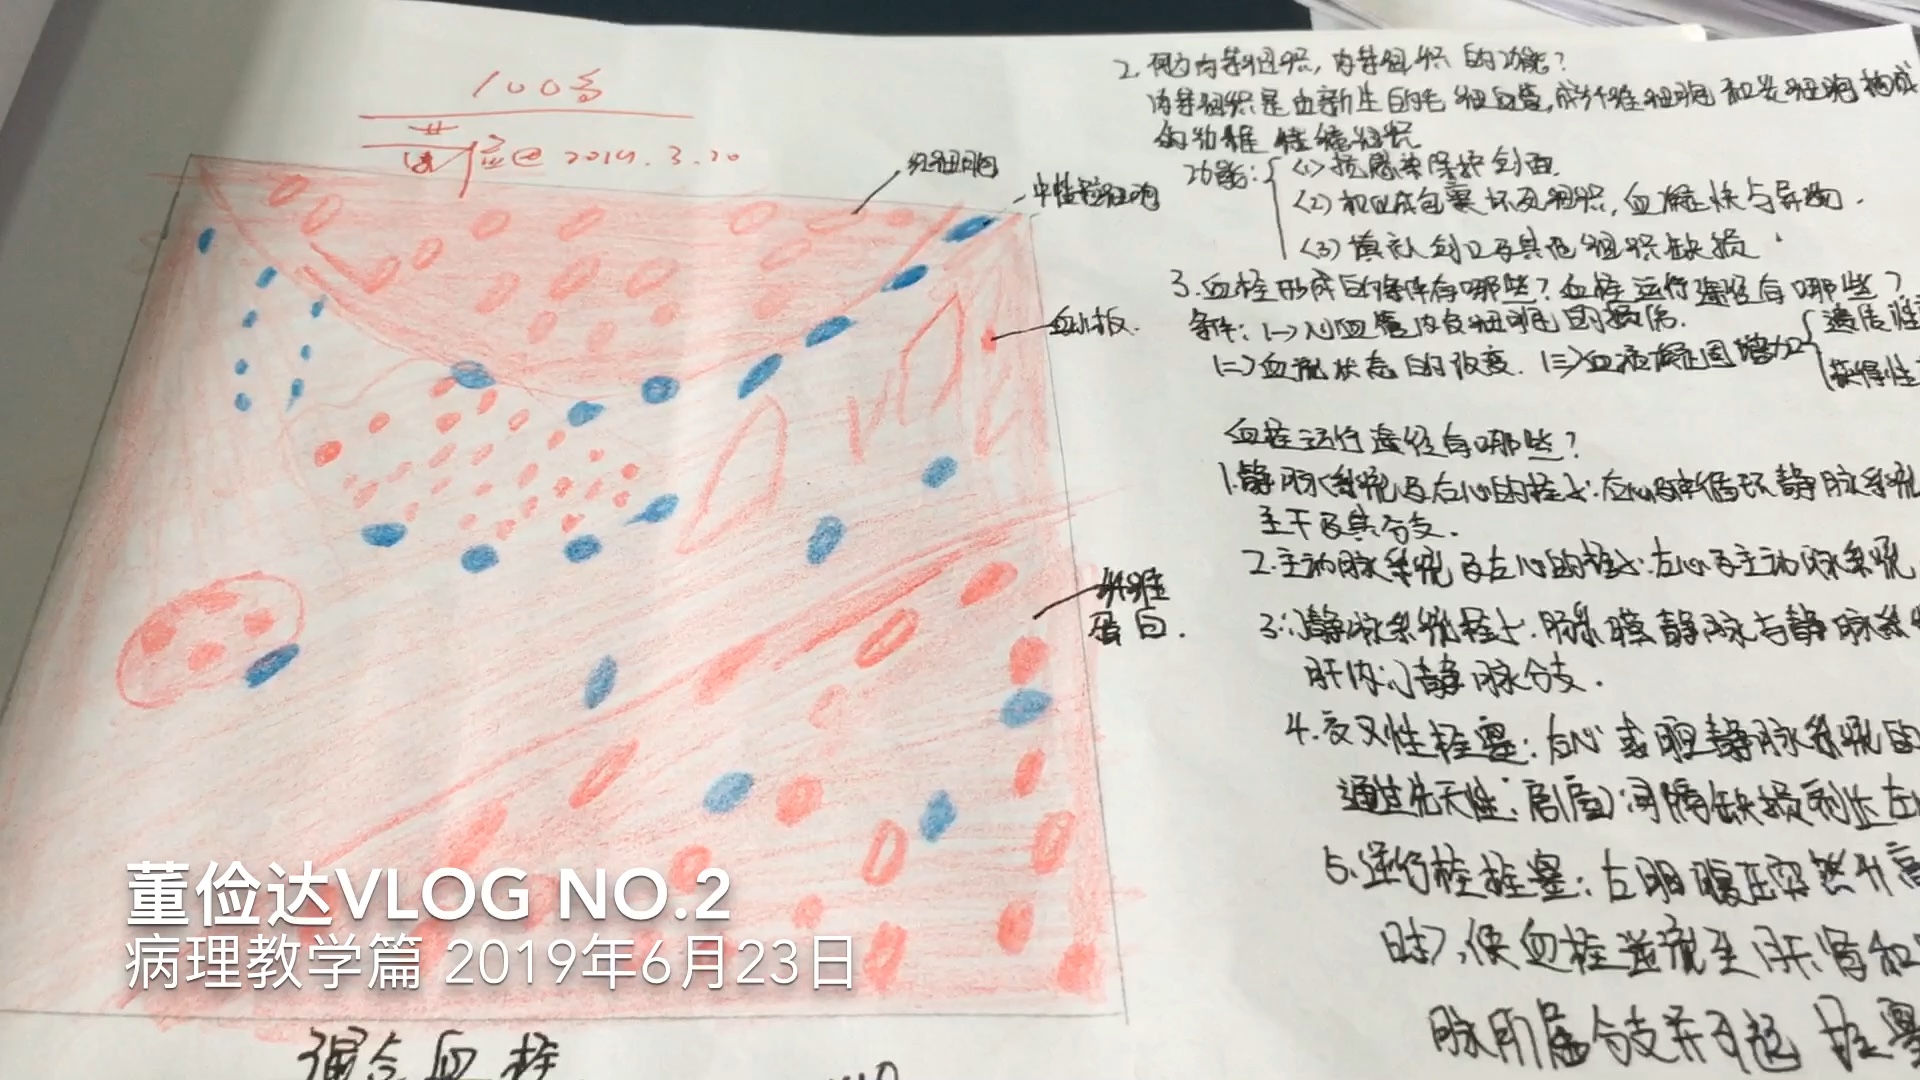 100分
2019.3.20
红细胞
中性粒细胞
血小板.
纤维
蛋白.
混合血栓
2. 何为肉芽组织, 肉芽组织的功能?
肉芽组织是由新生的毛细血管,成纤维细胞和炎细胞构成
的幼稚结缔组织
功能: (1)抗感染保护创面.
(2)机化或包裹坏死组织,血凝块与异物.
(3)填充创口及其他组织缺损.
3.血栓形成的条件有哪些? 血栓运行途径有哪些?
条件:(一)心血管内皮细胞的损伤.
(二)血流状态的改变. (三)血液凝固增加
遗传性
获得性
血栓运行途径有哪些?
1.静脉系统及右心的栓子:
主干及其分支.
2.主动脉系统及左心的栓子:左心及主动脉系统
3.门静脉系统栓子.
肝内门静脉分支.
4.交叉性栓塞:
通过先天性:房(室)间隔缺损到达左
5.逆行栓栓塞:
时),使血栓逆流至肝.肾和
脉所属分支并引起栓塞
董俭达VLOG NO.2
病理教学篇 2019年6月23日